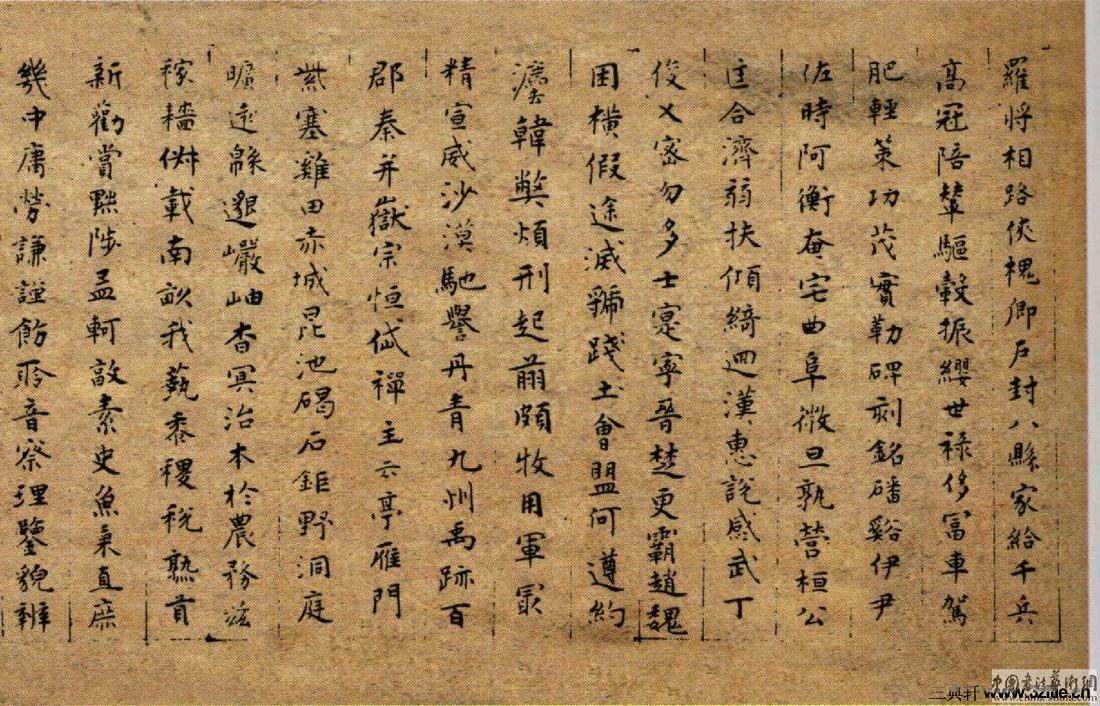 羅將相路俠槐卿戶封八縣家給千兵
高冠陪輦驅轂振纓世祿侈富車駕
肥輕策功茂實勒碑刻銘磻谿伊尹
佐時阿衡奄宅曲阜微旦孰營桓公
匡合濟弱扶傾綺迴漢惠說感武丁
俊乂密勿多士寔寧晉楚更霸趙魏
困橫假途滅虢踐土會盟何遵約
灋韓弊煩刑起翦頗牧用軍最
精宣威沙漠馳譽丹青九州禹跡百
郡秦并嶽宗恒岱禪主云亭雁門
紫塞雞田赤城昆池碣石鉅野洞庭
曠遠緜邈巖岫杳冥治本於農務滋
稼穡俶載南畝我藝黍稷稅熟貢
新勸賞黜陟孟軻敦素史魚秉直庶
幾中庸勞謙謹勅聆音察理鑒貌辨
中国书法艺术网